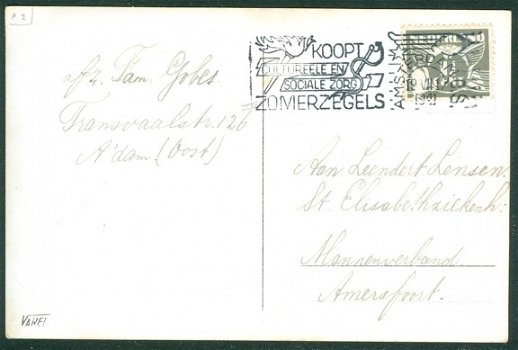 P 2
Afz. Fam. Gobes
Transvaalstr. 126
A'dam (Oost)
KOOPT
CULTUREELE EN
SOCIALE ZORG
ZOMERZEGELS
AMSTERDAM
1941
NEDERLAND
Aan Leendert Lensen.
St. Elisabethziekenh.
Mannenverband.
Amersfoort.
VANFI